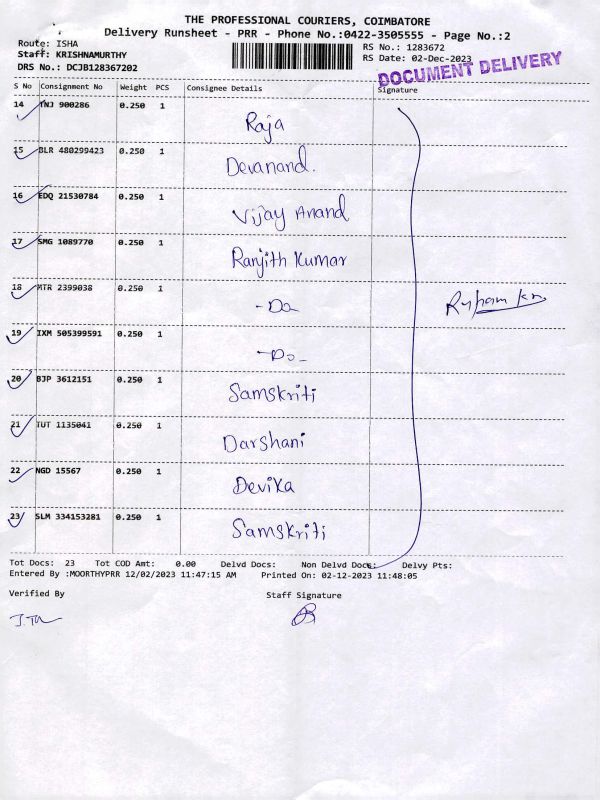 THE PROFESSIONAL COURIERS, COIMBATORE
Delivery Runsheet - PRR - Phone No.:0422-3505555 - Page No.:2
Route: ISHA
RS No.: 1283672
Staff: KRISHNAMURTHY
RS Date: 02-Dec-2023
DRS No.: DCJB128367202
DOCUMENT DELIVERY
S No Consignment No Weight PCS Consignee Details Signature
14 TNJ 900286 0.250 1 Raja
15 BLR 480299423 0.250 1 Devanand.
16 EDQ 21530784 0.250 1 Vijay Anand
17 SMG 1089770 0.250 1 Ranjith Kumar
18 MTR 2399038 0.250 1 -Do
19 IXM 505399591 0.250 1 -Do-
20 BJP 3612151 0.250 1 Samskriti
21 TUT 1135041 0.250 1 Darshani
22 NGD 15567 0.250 1 Devika
23 SLM 334153281 0.250 1 Samskriti
Tot Docs: 23 Tot COD Amt: 0.00 Delvd Docs: Non Delvd Docs: Delvy Pts:
Entered By :MOORTHYPRR 12/02/2023 11:47:15 AM Printed On: 02-12-2023 11:48:05
Verified By Staff Signature